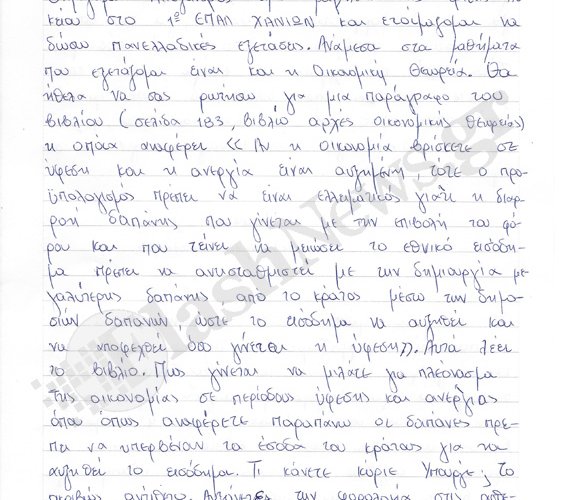 κειαι στο 1º ΕΠΑΛ ΧΑΝΙΩΝ και ετοιμάζομαι να
δώσω πανελλαδικές εξετάσεις. Ανάμεσα στα μαθήματα
που εξετάζομαι είναι και η Οικονομική Θεωρία. Θα
ήθελα να σας ρωτήσω για μια παράγραφο του
βιβλίου (σελίδα 183, βιβλίο αρχές οικονομικής θεωρείας)
η οποία αναφέρει << Αν η οικονομία βρίσκετε σε
ύφεση και η ανεργία είναι αυξημένη, τότε ο προ-
ϋπολογισμός πρέπει να είναι ελλειματικός γιατί η διαρ-
ροή δαπάνης που γίνεται με την επιβολή του φό-
ρου και που τείνει να μειώσει το εθνικό εισόδη-
μα πρέπει να αντισταθμιστεί με την δημιουργία με-
γαλύτερης δαπάνης από το κράτος μέσω των δημο-
σιών δαπανών, ώστε το εισόδημα να αυξηθεί και
να υποφεχθεί όσο γίνεται η ύφεση>>. Αυτά λέει
το βιβλίο. Πως γίνεται να μιλάτε για πλεόνασμα
της οικονομίας σε περίοδους ύφεσης και ανεργίας
όπου όπως αναφέρετε παραπάνω οι δαπάνες πρέ-
πει να υπερβένουν τα έσοδα του κράτους για να
αυξηθεί το εισόδημα. Τι κάνετε κύριε Υπουργέ; το
ακριβώς αντίθετο. την φορολογία στι